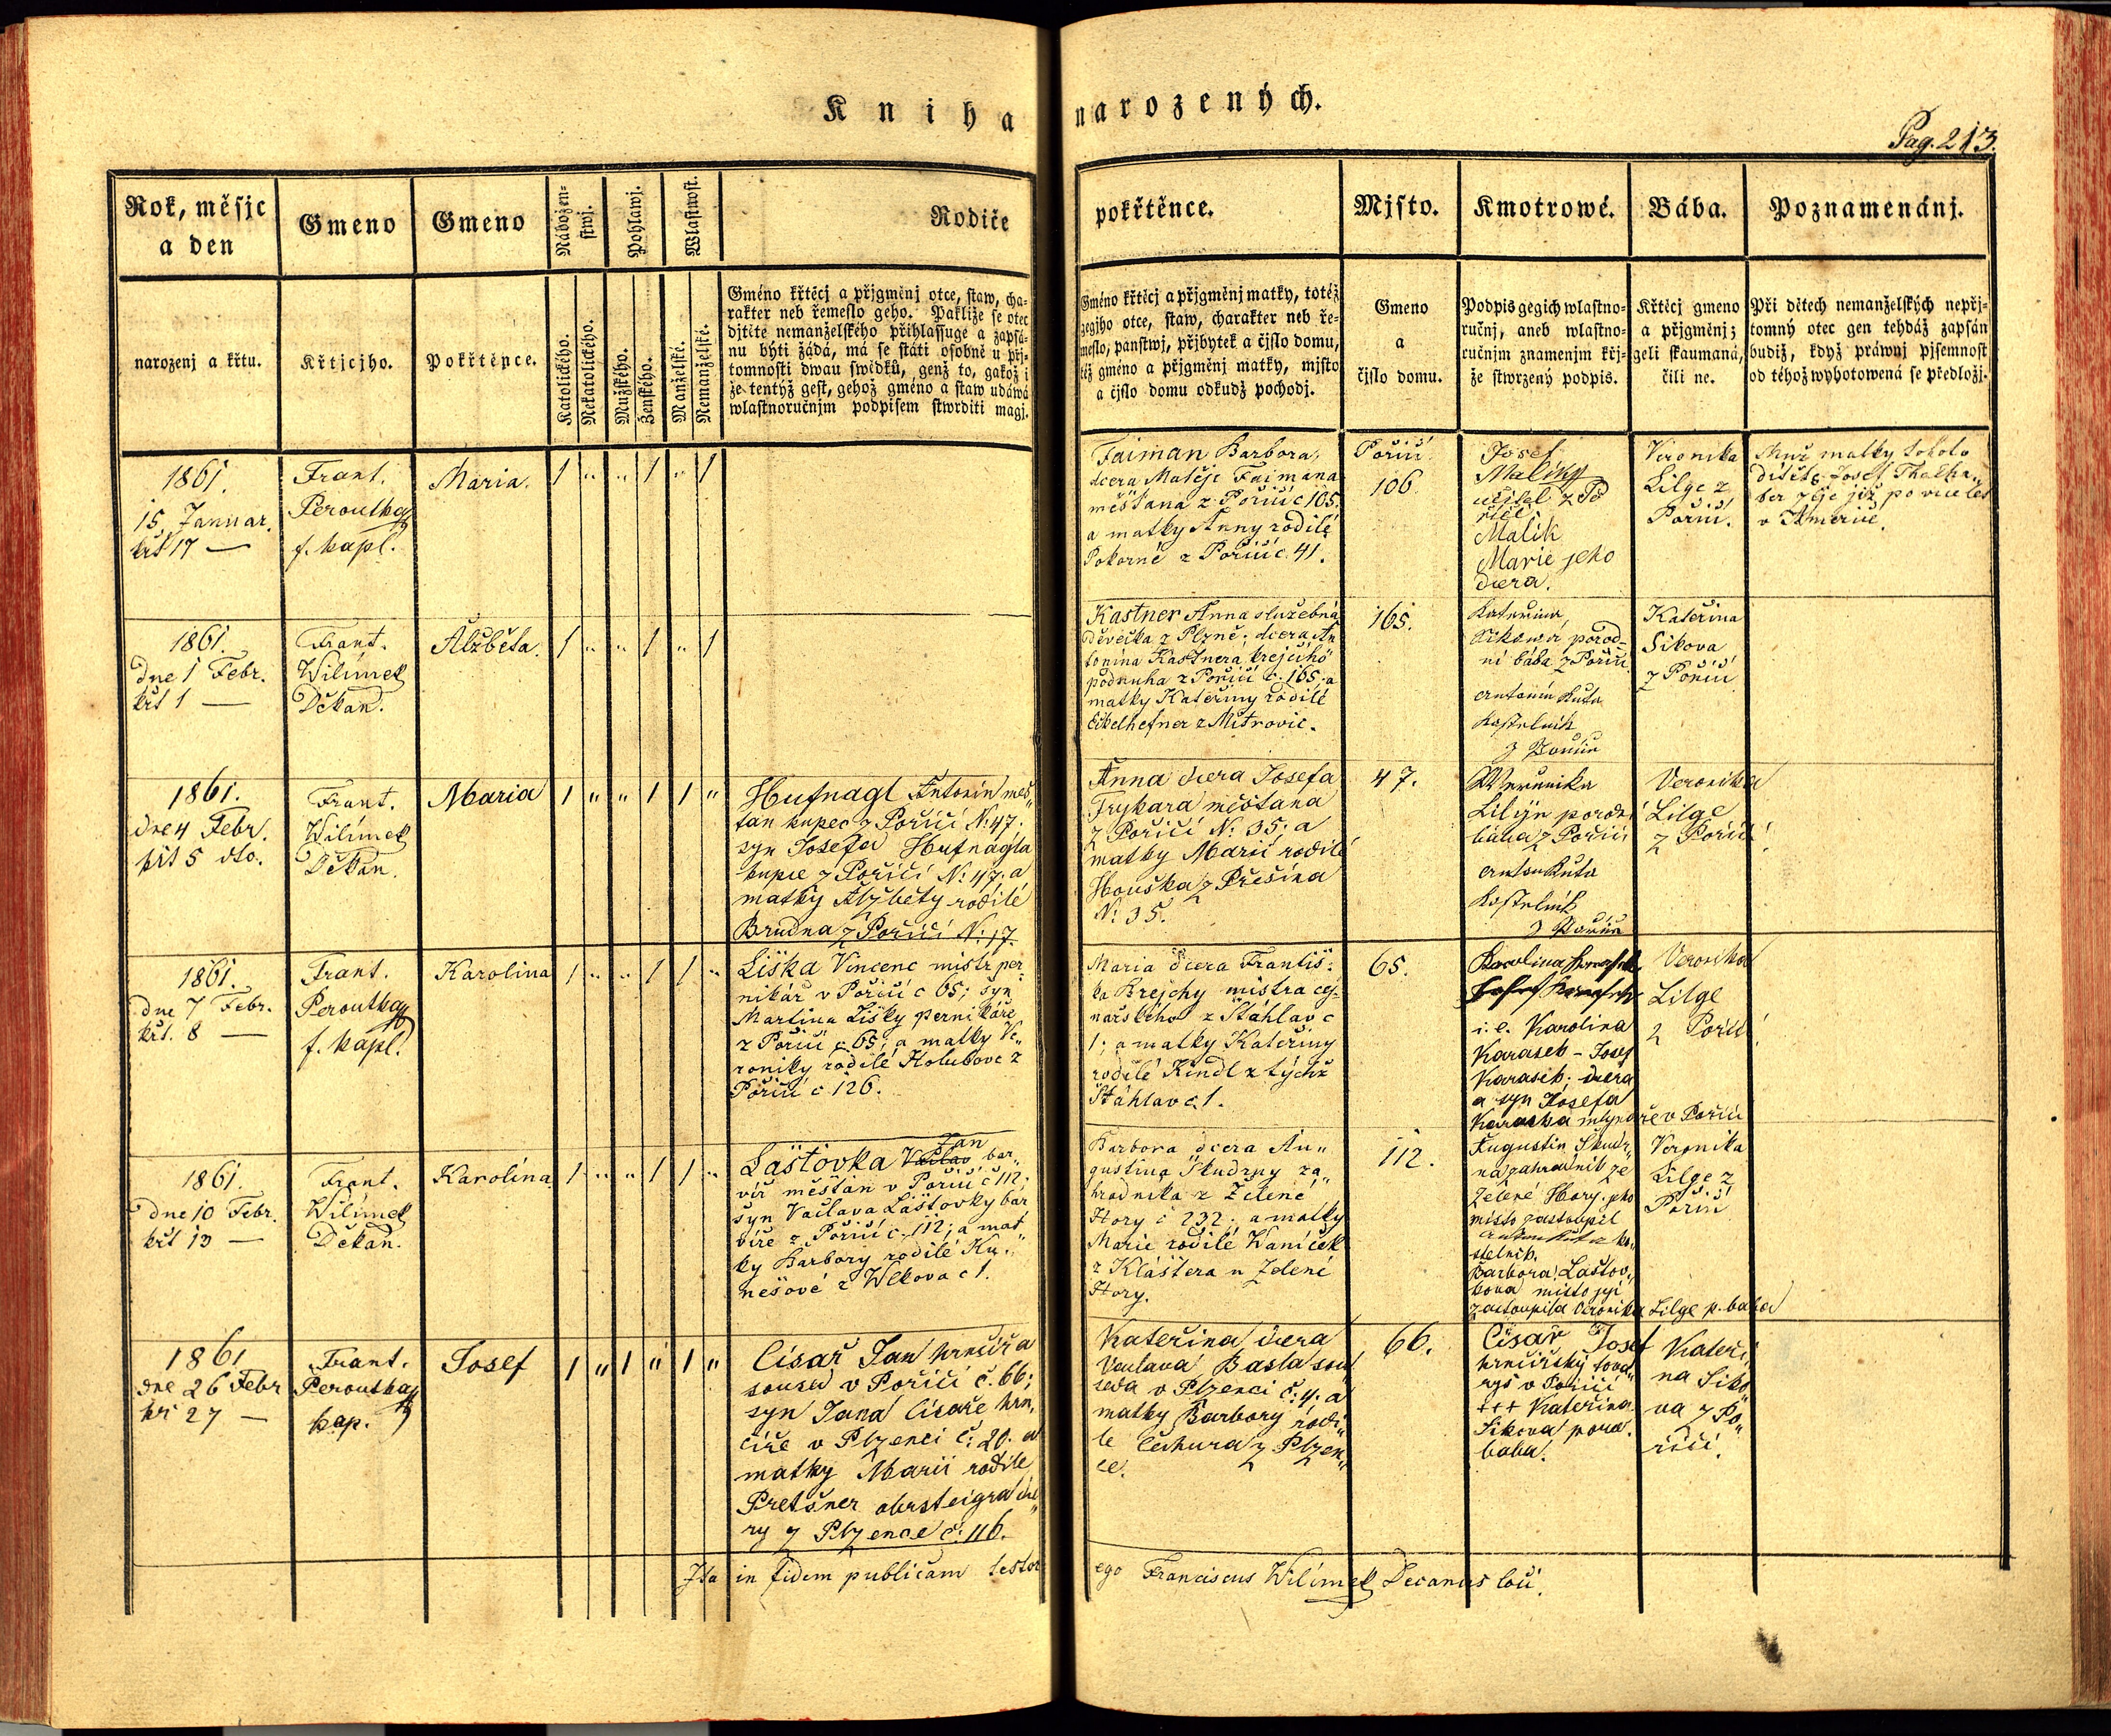 Kniha narozených.
Pag. 213.
Rok, měsjc
a den
Gmeno
Gmeno
Nábožen-
stwj.
Pohlawj.
Wlastnost.
Rodiče
pokřtěnce.
Mjsto.
Kmotrowé.
Bába.
Poznamenánj.
narozenj a křtu.
Křtjcjho.
Pokřtěnce.
Katolického.
Nekatolického.
Mužského.
Ženského.
Manželské.
Nemanželské.
Gméno křtěcj a přjgměnj otce, staw, cha-
rakter neb řemeslo geho. Pakliže se otec
djtěte nemanželského přihlassuge a zapsá-
nu býti žádá, má se státi osobně u přj-
tomnosti dwau swědků, genž to, gakož i
že tentýž gest, gehož gméno a staw udáwá
wlastnoručnjm podpisem stwrditi magj.
Gméno křtěcj a přjgměnj matky, totéž
gegjho otce, staw, charakter neb ře-
meslo, panstwj, přjbytek a čjslo domu,
též gméno a přjgměnj matky, mjsto
a čjslo domu odkudž pocházj.
Gmeno
a
čjslo domu.
Podpis gegich wlastno-
ručnj, aneb wlastno-
ručnjm znamenjm křj-
že stwrzený podpis.
Křtěcj gmeno
a přjgměnj;
geli skaumaná,
čili ne.
Při dětech nemanželských nepřj-
tomný otec gen tehdáž zapsán
budiž, když práwnj pjsemnost
od téhož wyhotowená se předložj.
1861.
15. Januar.
křt 17 —
Frant.
Peroutka
f. kapl.
Maria.
1 " " 1 " 1
Faiman Barbora,
dcera Matěje Faimana
měšťana z Poříčí č 105.
a matky Anny rodilé
Pokorné z Poříčí č. 41.
Poříčí
106.
Josef
Malík
učitel z Po
říčí.
Malík
Marie jeho
dcera.
Veronika
Lilge z
Poříčí.
Muž matky tohoto
dítěte Josef
ber žije již po více let
v Americe.
1861.
dne 1 Febr.
křt 1 —
Frant.
Wilímek
Děkan.
Alžběta.
1 " " 1 " 1
Kastner Anna služebná
děvečka z Plzně; dcera An
tonína Kastnera krejčího
podruha z Poříčí č. 165; a
matky Kateřiny rodilé
z Mitrovic.
165.
Kateřina
Sikowá porod-
ní bába z Poříčí
Antonín Kuta
Kostelník
z Poříčí
Kateřina
Sikova
z Poříčí
1861.
dne 4 Febr.
křt 5 dto.
Frant.
Wilímek
Děkan.
Maria
1 " " 1 1 "
Hufnagl Antonín měš"
ťan kupec z Poříčí N: 47.
syn Josefa Hufnagla
kupce z Poříčí N: 47. a
matky Alžběty rodilé
Brudna z Poříčí N: 17.
Anna dcera Josefa
Frykara měšťana
z Poříčí N: 35; a
matky Marii rodilé
Houška z Přešína
N: 35.
47.
Werunika
Lilijn porodn
bába z Poříčí
Anton Kuta
Kostelník
z Poříčí
Veronika
Lilge
z Poříčí
1861.
dne 7 Febr.
křt. 8 —
Frant.
Peroutka
f. kapl.
Karolina
1 " " 1 1 "
Liška Vincenc mistr per
nikář v Poříčí č 65; syn
Martina Lišky pernikáře
z Poříčí č 65; a matky Ve"
roniky rodilé Holubove z
Poříčí č 126.
Maria dcera Františ-
ka Brejchy mistra cej-
nařského z Šťáhlav č
1; a matky Kateřiny
rodilé Kindl z týchž
Šťáhlav č. 1.
65.
Karolina
i. e. Karolina
Karasek - Josef
Karasek; dcera
a syn Josefa
Karaska mlynáře v Poříčí
Veronika
Lilge
z Poříčí
1861.
dne 10 Febr.
křt 13 —
Frant.
Wilímek
Děkan.
Karolína
1 " " 1 1 "
Jan
Laštovka Václav bar"
víř měšťan v Poříčí č 112;
syn Vačlava Laštovky bar
víře z Poříčí č. 112; a mat
ky Barbory rodilé Ku"
nešové z Wlkova č 1.
Barbora dcera Au"
gustina Škudrny za"
hradníka z Zelené
Hory č 232; a matky
Marie rodilé Waníček
z Kláštera u Zelené
Hory.
112.
Augustin Škudr"
na zahradník ze
Zelené Hory. jeho
místo zastoupil
Anton Kuta ko"
stelník.
Barbora Laštov"
kova místo její
zastoupila Veronika Lilge p. baba
Veronika
Lilge z
Poříčí
1861
dne 26 Febr
kř 27 —
Frant.
Peroutka
kap.
Josef
1 " 1 " 1 "
Císař Jan hrnčíř a
soused v Poříčí č. 66;
syn Jana Císaře hrn"
číře v Plzenci č: 20. a
matky Marii rodile
Pretšner obrsteigra dce"
ry z Plzence č: 116.
Kateřina dcera
Vaclava Basla sou"
seda v Plzenci č: 4. a
matky Barbory rodi"
le Čechura z Plzen"
ce.
66.
Císař Josef
hrnčířský tova"
ryš v Poříčí
+++ Kateřina
Sikova porod.
baba.
Kateři"
na Siko"
va z Po"
říčí.
Ita in fidem publicam testor
ego Franciscus Wilímek Decanus loci.